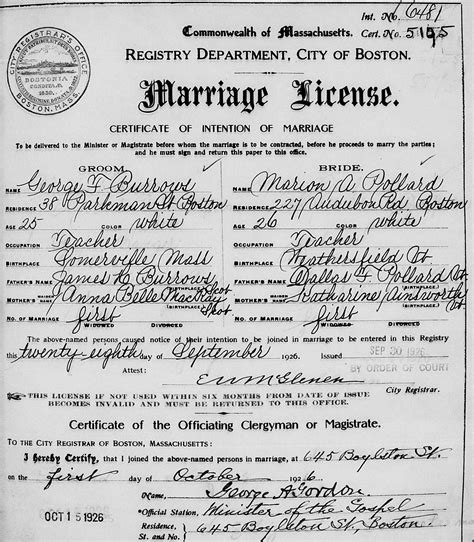 Int. No. 6481
Commonwealth of Massachusetts. Cert. No. 5155
CITY REGISTRAR'S OFFICE
BOSTONIA
CONDITA A.D.
1630.
BOSTON, MASS.
REGISTRY DEPARTMENT, CITY OF BOSTON.
Marriage License.
CERTIFICATE OF INTENTION OF MARRIAGE
To be delivered to the Minister or Magistrate before whom the marriage is to be contracted, before he proceeds to marry the parties;
and he must sign and return this paper to this office.
GROOM BRIDE
NAME George F Burrows NAME Marion A Pollard
RESIDENCE 38 Parkman St Boston RESIDENCE 227 Audubon Rd Boston
AGE 25 COLOR White AGE 26 COLOR White
OCCUPATION Teacher OCCUPATION Teacher
BIRTHPLACE Somerville Mass BIRTHPLACE Weathersfield Vt
FATHER'S NAME James K Burrows BIRTHPLACE Scot FATHER'S NAME Dallas F Pollard BIRTHPLACE Vt
MOTHER'S MAIDEN NAME Anna Belle MacKay BIRTHPLACE Scot MOTHER'S MAIDEN NAME Katharine Ainsworth BIRTHPLACE Vt
NO. OF MARRIAGE first WIDOWED DIVORCED NO. OF MARRIAGE first WIDOWED DIVORCED
The above-named persons caused notice of their intention to be joined in marriage to be entered in this Registry
this twenty-eighth day of September 1926. SEP 30 1926
Attest: BY ORDER OF COURT
E W McGlenen City Registrar.
THIS LICENSE IF NOT USED WITHIN SIX MONTHS FROM DATE OF ISSUE
BECOMES INVALID AND MUST BE RETURNED TO THIS OFFICE.
Certificate of the Officiating Clergyman or Magistrate.
TO THE CITY REGISTRAR OF BOSTON, MASSACHUSETTS:
I Hereby Certify, that I joined the above persons in marriage, at 645 Boylston St.
on the first day of October 1926
Name, George A Gordon
OCT 15 1926 Official Station, Minister of the Gospel
Residence, 645 Boylston St., Boston.